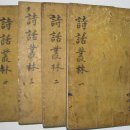 詩話叢林 一
詩話叢林 二
詩話叢林 三
詩話叢林 四